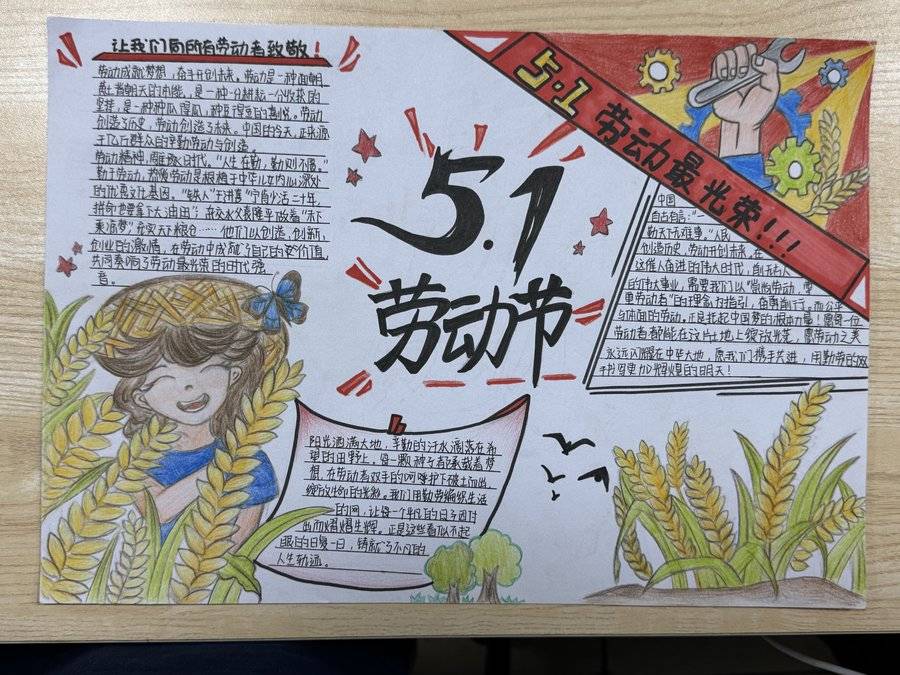 让我们向所有劳动者致敬！
劳动成就梦想，奋斗开创未来。劳动是一种面朝
黄土背朝天的本能，是一种一分耕耘一分收获的
坚持，是一种种瓜得瓜，种豆得豆的喜悦。劳动
创造了历史，劳动创造了未来。中国的今天，正来源
于亿万群众的辛勤劳动与创造。
劳动精神，雕琢时代。“人生在勤，勤则不匮。”
勤于劳动，崇俭劳动是根植于中华儿女内心深处
的优秀文化基因。“铁人”王进喜“宁肯少活二十年，
拼命也要拿下大油田”；杂交水父袁隆平做着“禾下
乘凉梦”，充实天下粮仓……他们以创造、创新、
创业的激情，在劳动中成就了自己的
价值，
共同奏响了劳动最光荣的时代强
音。
5.1
劳动节
5·1 劳动最光荣！！！
中国
自古有言：“一
勤天下无难事。”人民
创造历史，劳动开创未来。在
这催人奋进的伟大时代，
的伟大事业，需要我们以“崇尚劳动，尊
重劳动者”的理念为指引，奋勇前行。而公平
与体面的劳动，正是托起中国梦的根本力量！愿每一位
劳动者都能在这片土地上绽放光芒，愿劳动之美
永远闪耀在中华大地，愿我们携手共进，用勤劳的双
手书写更加辉煌的明天！
阳光洒满大地，辛勤的汗水滴落在希
望的田野上。每一颗种子都承载着梦
想，在劳动者双手的呵护下破土而出，
绽放出
的光彩。我们用勤劳编织生活
的网，让每一个平凡的日子因付
出而熠熠生辉。正是这些看似不起
眼的日复一日，铸就了不凡的
人生轨迹。